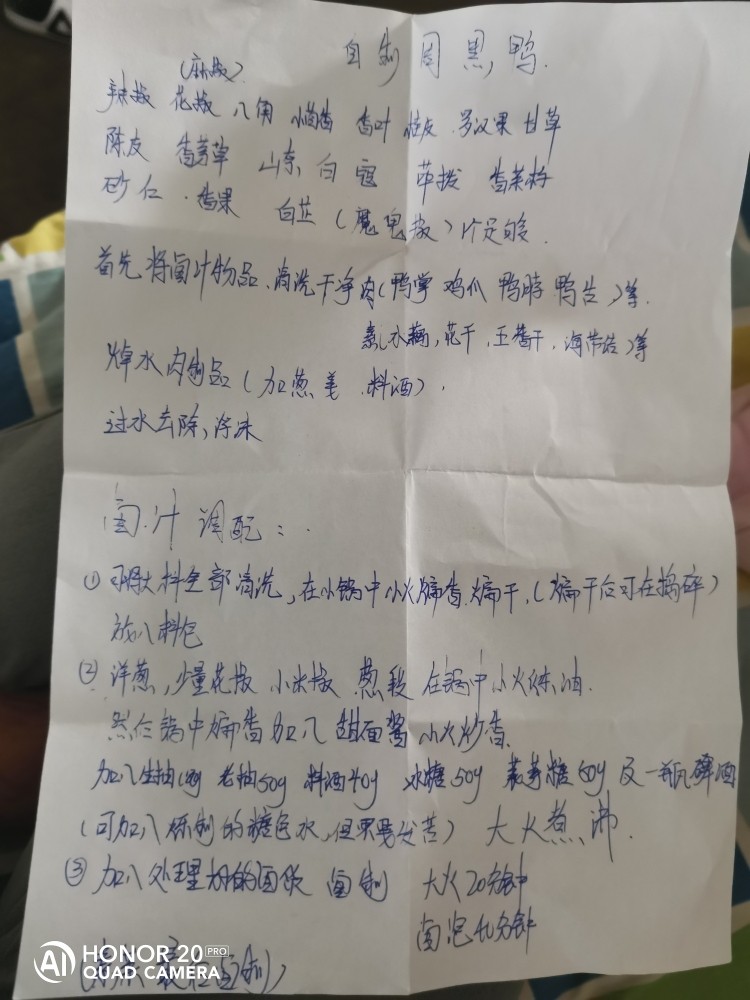 自制周黑鸭.
(麻椒)
辣椒 花椒 八角 小茴香 香叶 桂皮 罗汉果 甘草
陈皮 香茅草 山奈 白寇 荜拨 香菜籽
砂仁 香果 白芷(魔鬼椒)1片足够.
首先将卤汁物品.清洗干净肉(鸭掌 鸡爪 鸭脖 鸭舌)等.
素(水藕,花干,王香干,海带结)等
焯水肉制品(加葱姜 料酒).
过水去除,浮沫
卤汁调配:.
①将大料全部清洗,在小锅中小火煸香.煸干,(煸干后可在捣碎)
放入料包
②洋葱,少量花椒 小米椒 葱段 在锅中小火炼油.
然后锅中煸香加入甜面酱 小火炒香.
加入生抽 老抽50g 料酒40g 冰糖50g 麦芽糖60g 及一瓶啤酒
(可加入炼制的糖色水,但不要发苦) 大火煮沸.
③加入处理好的 卤制 大火20分钟
卤泡40分钟
HONOR 20 PRO
AI QUAD CAMERA